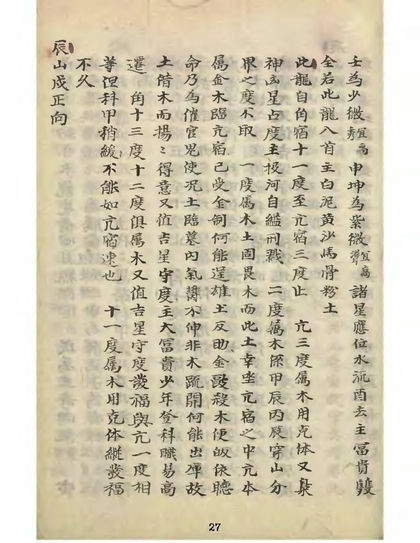 壬為少微宜高 申坤為紫微宜高 諸星應位水流酉去主富貴雙
全若此龍八首主白泥黃沙馬骨粉土
此龍自角宿十一度至亢宿三度止 亢三度屬木用克体又梟
神凶星占度主投河自縊刑戮 二度屬木係甲辰丙辰穿山分
界之度不取 一度屬木土固畏木而此土幸坐亢宿之中亢本
屬金木臨亢宿已受金制何能逞雄土反助金殺木便皈依聽
命乃為催官鬼使况土臨墓内氣鬱不伸非木疏開何能出庫故
土借木而揚揚得意又值吉星守度主大富貴少年登科職易高
遷 角十三度十二度俱屬木又值吉星守度發福與亢一度相
等但科甲稍緩不能如亢宿速也 十一度屬木用克体縱發福
不久
辰山戌正向
27